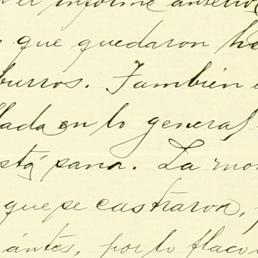 el informe anterio
que quedaron he
burros. También
llada en lo general
está sana. La mo
que se castraron,
antes, por lo flaco